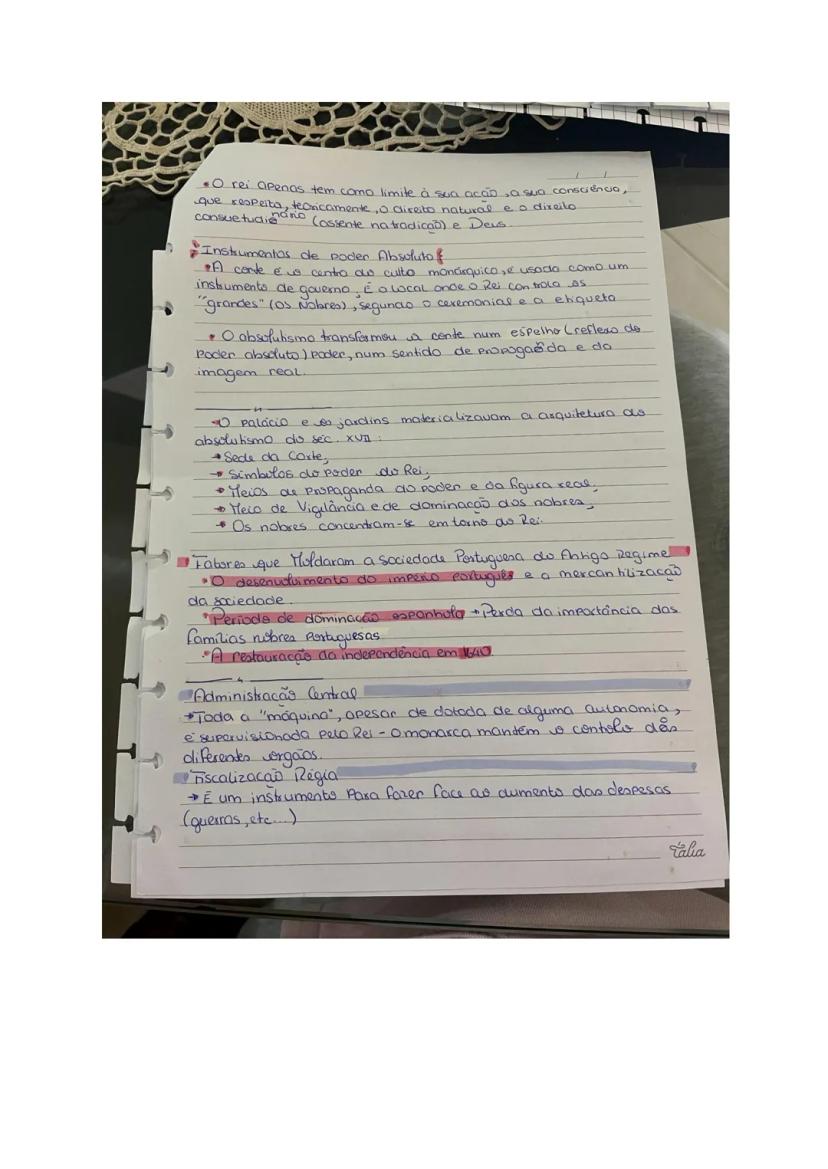 / /
•O rei apenas tem como limite à sua ação, a sua consciência,
que respeita, teoricamente, o direito natural e o direito
consuetudinário (assente na tradição) e Deus.
Instrumentos de poder Absoluto
•A corte é o centro do culto monárquico, é usada como um
instrumento de governo. É o local onde o Rei controla os
"grandes" (os Nobres), segundo o ceremonial e a etiqueta
• O absolutismo transformou a corte num espelho (reflexo do
Poder absoluto) Poder, num sentido de propaganda e da
imagem real.
•O palácio e os jardins materializavam a arquitetura do
absolutismo do séc. XVII:
→ Sede da Corte;
→ Símbolos do Poder do Rei;
→ Meios de Propaganda do poder e da figura real;
→ Meio de Vigilância e de dominação dos nobres;
→ Os nobres concentram-se em torno do Rei.
Fatores que Moldaram a Sociedade Portuguesa do Antigo Regime
•O desenvolvimento do império português e a mercantilização
da sociedade.
•Período de dominação espanhola → Perda da importância das
famílias nobres Portuguesas
•A restauração da independência em 1640.
Administração Central
→Toda a "máquina", apesar de dotada de alguma autonomia,
é supervisionada pelo Rei - O monarca mantém o contolo dos
diferentes orgãos.
Fiscalização Régia
→ É um instrumento Para fazer face ao aumento das despesas
(guerras, etc...)
Talia